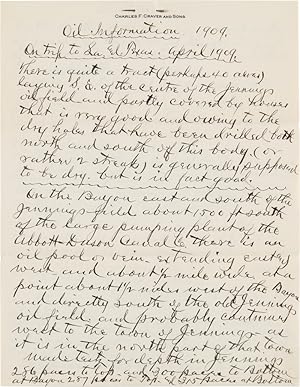 CHARLES F. CRAVER AND SONS
Oil Information 1909.
On trip to La. El Paso. April 1909.
there is quite a tract (perhaps 40 acres)
laying S. E. of the centre of the Jennings
oil field and partly covered by houses
that is very good and owing to the
dry holes that have been drilled both
north and south of this body (or
rather 2 streaks) is generally supposed
to be dry. but is in fact good.
On the Bayou east and south of the
Jennings field about 1500 ft south
of the large pumping plant of the
Abbott Duson Canal Co there is an
oil pool or vein extending east
west and about 1/4 mile wide, at a
point about 1/2 miles west of the Bayou
and directly south of the old Jennings
oil field and probably continues
west to the town of Jennings as
it is in the north part of that town
made test for depth in Jennings
286 paces to top. and 300 paces to Bottom
at Bayou 287 paces to top. 315 at Bottom